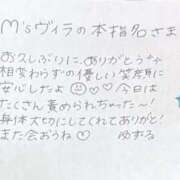 M'sヴィラの本指名さま
お久しぶりに、ありがとう
相変わらずの優しい笑顔に
安心したよ◯♡今日は
たくさん責められちゃったー!
身体大切にしてくれてありがと!
また会おうね♡
ゆずる